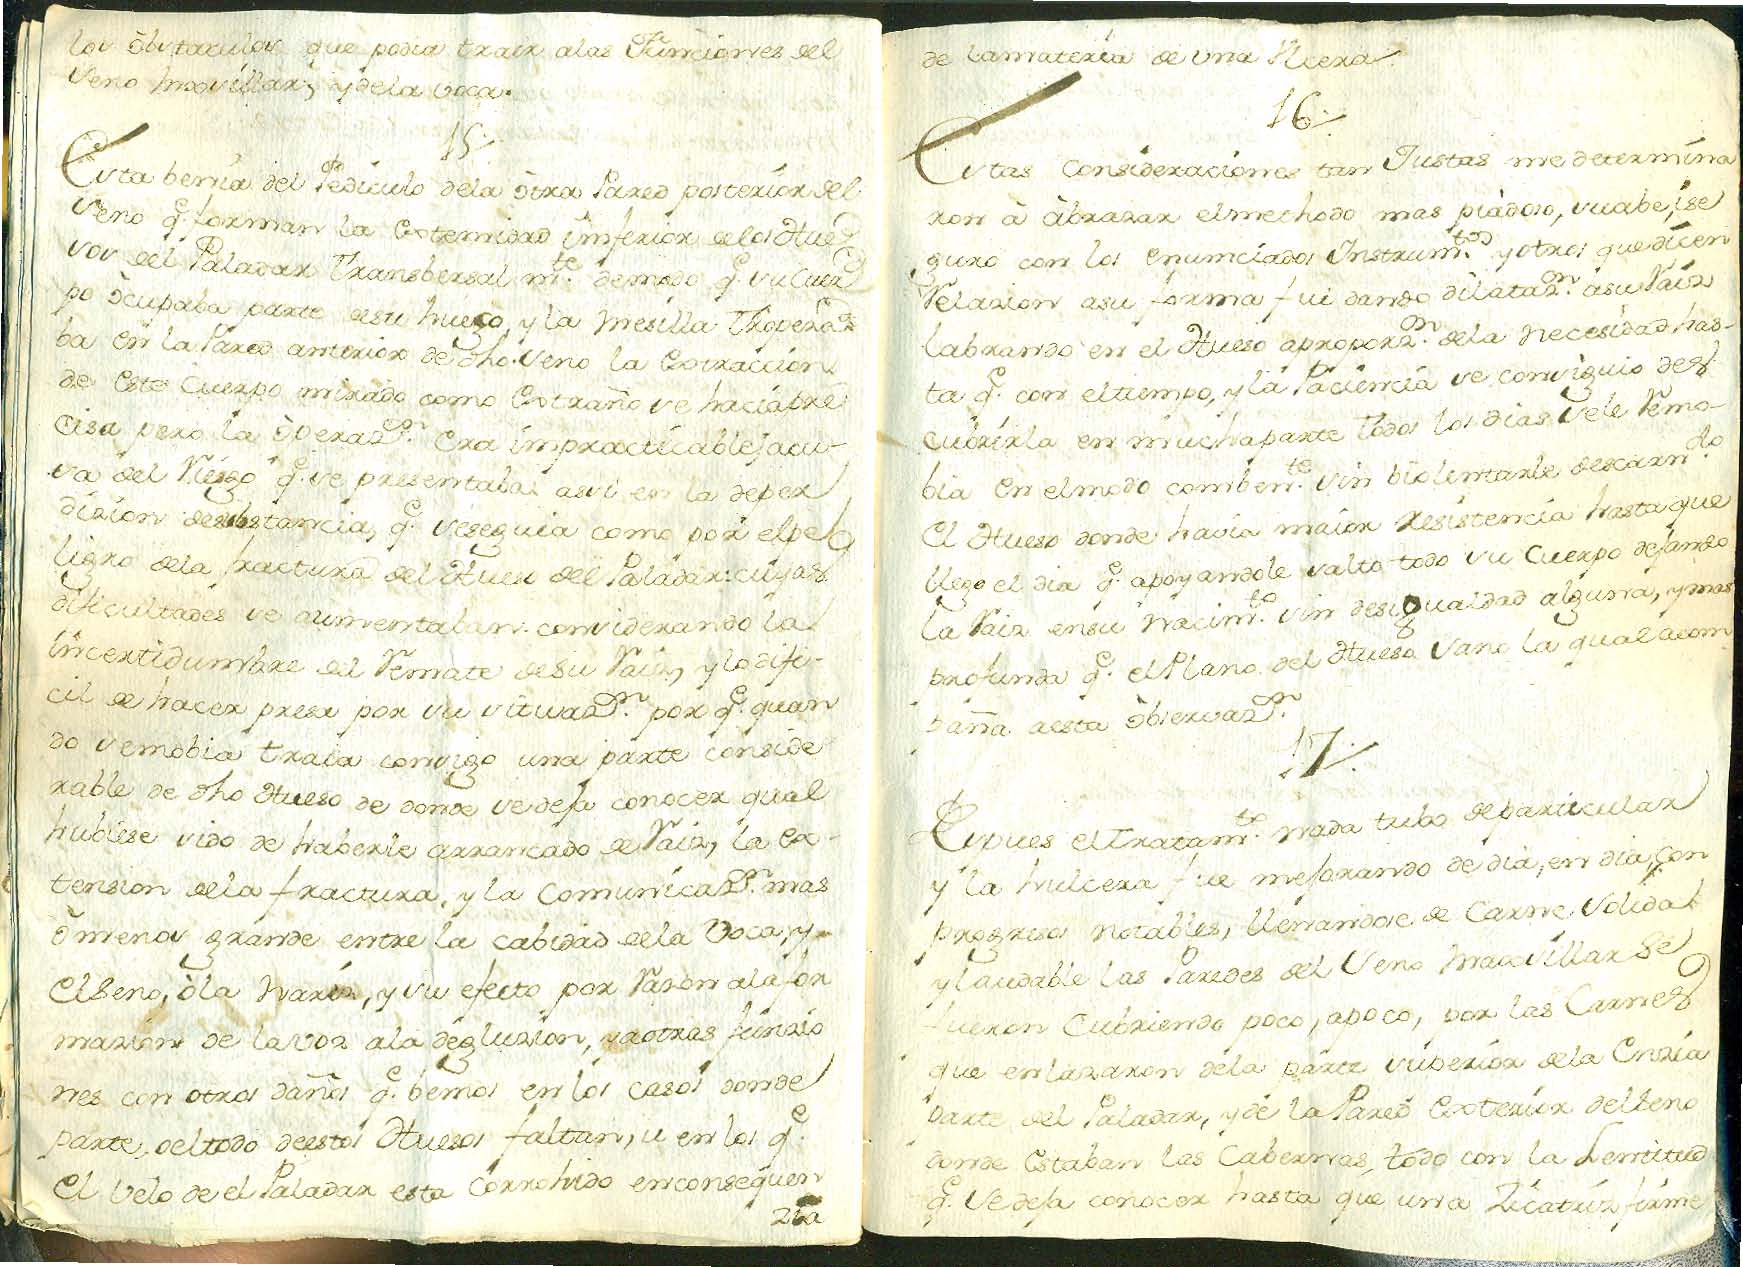 los obstaculos que podia traer alas Funciones del
Seno maxillar, y dela voca.
15.
Esta benia del Pediculo dela otra Pared posterior del
Seno q.e forman la Extremidad imferior delos Hue
sos del Paladar Transbersal m.te demodo q.e su Cuer
po ocupaba parte desu hueco, y la mesilla
ba en la Pared anterior de dho. Seno la Extraccion
de este Cuerpo mirado como Extraño se hacia pre
cisa pero la operaz.on era impracticable jacu-
sa del Riesgo q.e se presentaba: assi en la deper
dizion desubstancia, q.e seseguia como por elpe
ligro dela fractura del Hueso del Paladar: cuyas
dificultades se aumentaban considerando la
incertidumbre del Remate desu Raiz, y lo difi-
cil de hacer presa por su situaz.on por q.e quan
do semobia traia consigo una parte conside
rable de dho Hueso de donde se deja conocer qual
hubiese sido de haberle arrancado de Raiz, la ex-
tension dela fractura, y la Comunicaz.on mas
ò menos grande entre la cabidad dela Voca, y
el Seno, ò la Nariz, y su efecto por Razon ala for
mazion de la voz ala degluzion, y aotras funzio
nes con otros daños q.e bemos en los casos donde
parte, oeltodo deestos Huesos faltan, u en los q.e
el Velo de el Paladar esta Corrohido enconsequen
zia
de lamateria de una Ulcera.
16.
Estas Consideraciones tan Justas me determina
ron à abrazar elmethodo mas piadoso, suabe, i se
guro con los enunciados Instrum.tos y otros que dicen
Relazion asu forma fui dando dilataz.on asu Raiz
labrando en el Hueso aproporz.on dela necesidad has-
ta q.e con eltiempo, y la Paciencia se consiguio des
cubrirla en mucha parte Todos los dias sele Remo-
bia en elmodo comben.te sin biolentarle descarn.do
el Hueso donde havia maior Resistencia hasta que
llego el dia q.e apoyandole salto todo su Cuerpo dejando
la Raiz ensu nacim.to sin desigualdad alguna, y mas
profunda q.e el Plano del Hueso Sano la qual acom
paña aesta observaz.on
17.
Espues el Tratam.to nada tubo departicular
y la hulcera fue mejorando de dia, en dia, con
progresos notables, llenandose de Carne Solida
y laudable las Paredes del Seno maxillar Se
fueron Cubriendo poco, apoco, por las Carnes
que enlazaron dela parte superior dela Enzia
parte del Paladar, y de la Pared Exterior del Seno
donde Estaban las Cabernas, todo con la Lentitud
q.e Se deja conocer hasta que una Zicatriz firme